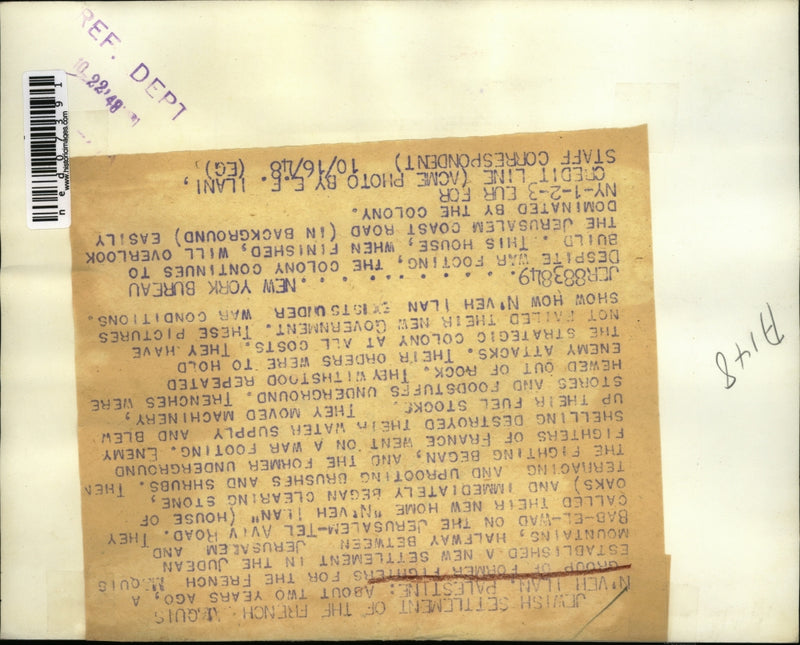 JEWISH SETTLEMENT OF THE FRENCH MAQUIS
N'VEH ILAN, PALESTINE: ABOUT TWO YEARS AGO, A
GROUP OF FORMER FIGHTERS FOR THE FRENCH MAQUIS
ESTABLISHED A NEW SETTLEMENT IN THE JUDEAN
MOUNTAINS, HALFWAY BETWEEN JERUSALEM AND
BAB-EL-WAD ON THE JERUSALEM-TEL AVIV ROAD. THEY
CALLED THEIR NEW HOME "N'VEH ILAN" (HOUSE OF
OAKS) AND IMMEDIATELY BEGAN CLEARING STONE,
TERRACING AND UPROOTING BRUSHES AND SHRUBS. THEN
THE FIGHTING BEGAN, AND THE FORMER UNDERGROUND
FIGHTERS OF FRANCE WENT ON A WAR FOOTING. ENEMY
SHELLING DESTROYED THEIR WATER SUPPLY AND BLEW
UP THEIR FUEL STOCKS. THEY MOVED MACHINERY,
STORES AND FOODSTUFFS UNDERGROUND. TRENCHES WERE
HEWED OUT OF ROCK. THEY WITHSTOOD REPEATED
ENEMY ATTACKS. THEIR ORDERS WERE TO HOLD
THE STRATEGIC COLONY AT ALL COSTS. THEY HAVE
NOT FAILED THEIR NEW GOVERNMENT. THESE PICTURES
SHOW HOW N'VEH ILAN EXISTS UNDER WAR CONDITIONS.
JER883849. . . . . . . . . . . NEW YORK BUREAU
DESPITE WAR FOOTING, THE COLONY CONTINUES TO
BUILD. THIS HOUSE, WHEN FINISHED, WILL OVERLOOK
THE JERUSALEM COAST ROAD (IN BACKGROUND) EASILY
DOMINATED BY THE COLONY.
NY-1-2-3 EUR FOR
CREDIT LINE (ACME PHOTO BY E.E. ILANI,
STAFF CORRESPONDENT) 10/16/48 (EG).
REF. DEPT
10-22-48
www.historicimages.com
ned07391
A148